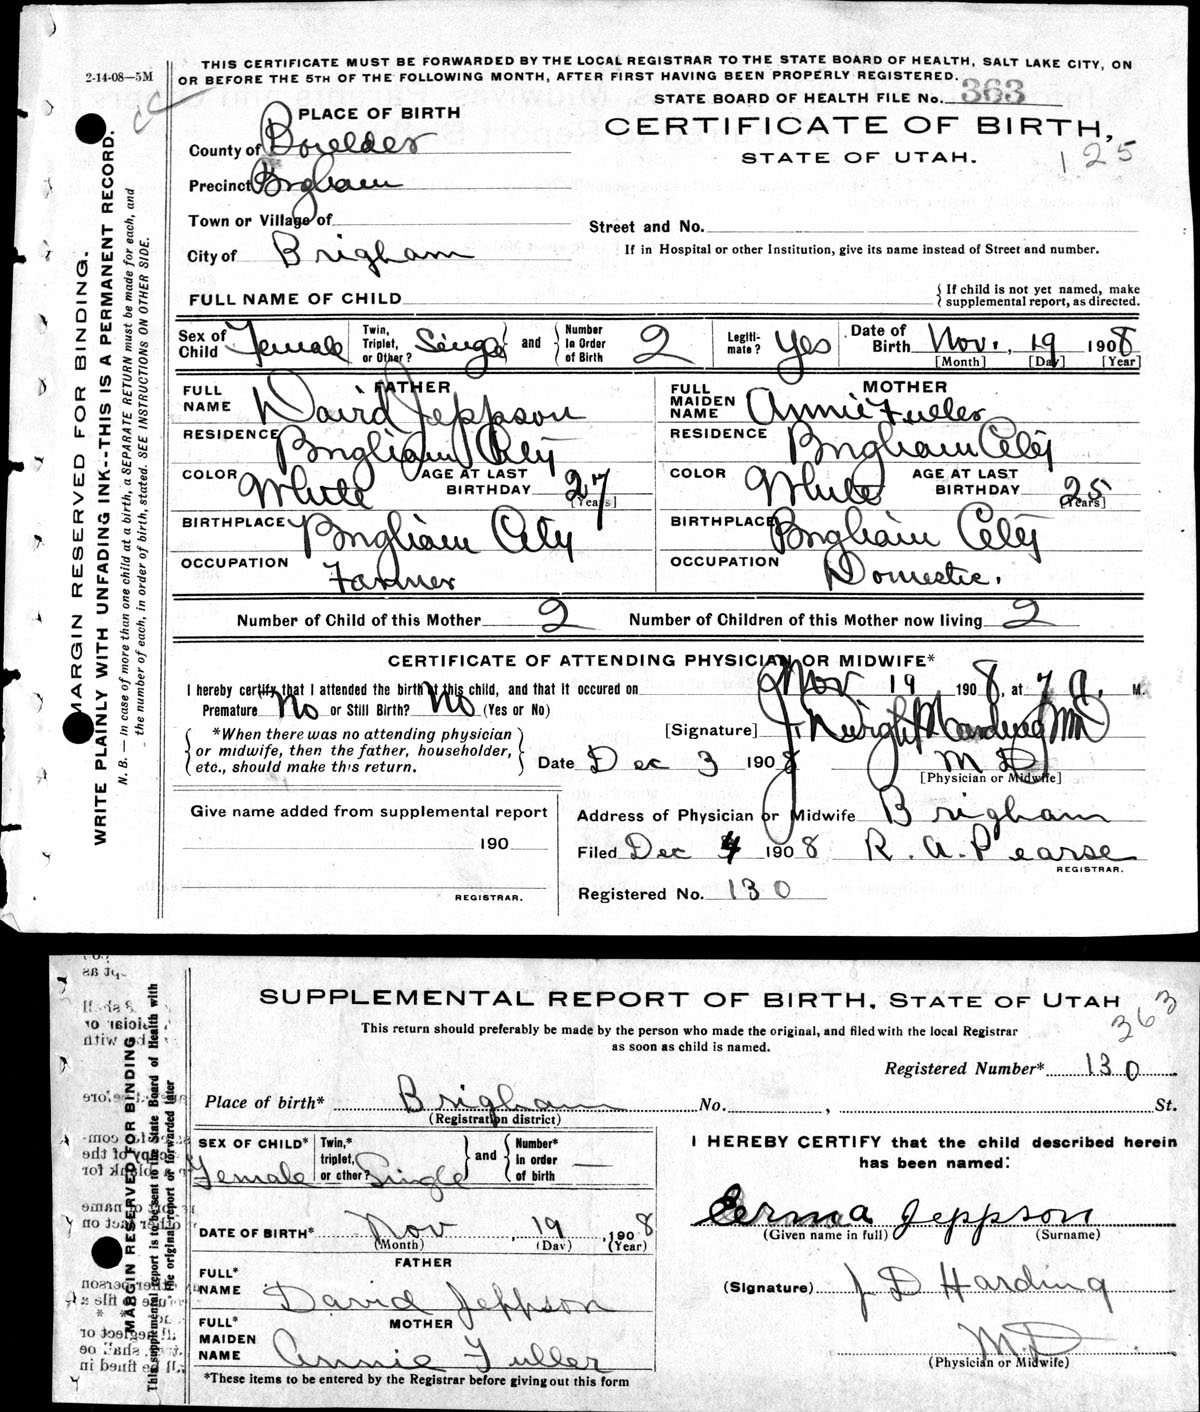 2-14-08—5M
THIS CERTIFICATE MUST BE FORWARDED BY THE LOCAL REGISTRAR TO THE STATE BOARD OF HEALTH, SALT LAKE CITY, ON
OR BEFORE THE 5TH OF THE FOLLOWING MONTH, AFTER FIRST HAVING BEEN PROPERLY REGISTERED.
STATE BOARD OF HEALTH FILE No. 363
PLACE OF BIRTH
CERTIFICATE OF BIRTH,
STATE OF UTAH.
125
County of Boxelder
Precinct Brigham
Town or Village of
Street and No.
City of Brigham
If in Hospital or other Institution, give its name instead of Street and number.
FULL NAME OF CHILD
{ If child is not yet named, make
supplemental report, as directed.
Sex of Child Female
Twin, Triplet, or Other? Single } and { Number In Order of Birth 2
Legiti-mate? Yes
Date of Birth Nov. 19 1908
[Month] [Day] [Year]
FATHER
FULL NAME David Jeppson
RESIDENCE Brigham City
COLOR White AGE AT LAST BIRTHDAY 27 [Years]
BIRTHPLACE Brigham City
OCCUPATION Farmer
MOTHER
FULL MAIDEN NAME Annie Fuller
RESIDENCE Brigham City
COLOR White AGE AT LAST BIRTHDAY 25 [Years]
BIRTHPLACE Brigham City
OCCUPATION Domestic.
Number of Child of this Mother 2 Number of Children of this Mother now living 2
CERTIFICATE OF ATTENDING PHYSICIAN OR MIDWIFE*
I hereby certify that I attended the birth of this child, and that it occured on Nov 19 1908, at 7 a. M.
Premature No or Still Birth? No (Yes or No)
{ *When there was no attending physician
or midwife, then the father, householder,
etc., should make this return. }
[Signature] J Dwight Harding MD
Date Dec 3 1908 M D
[Physician or Midwife]
Give name added from supplemental report
190
REGISTRAR.
Address of Physician or Midwife Brigham
Filed Dec 4 1908 R. A. Pearse
REGISTRAR.
Registered No. 130
MARGIN RESERVED FOR BINDING.
WRITE PLAINLY WITH UNFADING INK--THIS IS A PERMANENT RECORD.
N. B. — in case of more than one child at a birth, a SEPARATE RETURN must be made for each, and
the number of each, in order of birth, stated. SEE INSTRUCTIONS ON OTHER SIDE.
SUPPLEMENTAL REPORT OF BIRTH, STATE OF UTAH
363
This return should preferably be made by the person who made the original, and filed with the local Registrar
as soon as child is named.
Registered Number* 130
Place of birth* Brigham No. , St.
(Registration district)
SEX OF CHILD* Female
Twin,* triplet, or other? Single } and { Number* in order of birth —
DATE OF BIRTH* Nov , 19 , 1908
(Month) (Day) (Year)
FATHER
FULL* NAME David Jeppson
MOTHER
FULL* MAIDEN NAME Annie Fuller
*These items to be entered by the Registrar before giving out this form
I HEREBY CERTIFY that the child described herein
has been named:
Erma Jeppson
(Given name in full) (Surname)
(Signature) J D Harding
M D
(Physician or Midwife)
MARGIN RESERVED FOR BINDING
This supplemental report is to be sent to the State Board of Health with
the original report or forwarded later